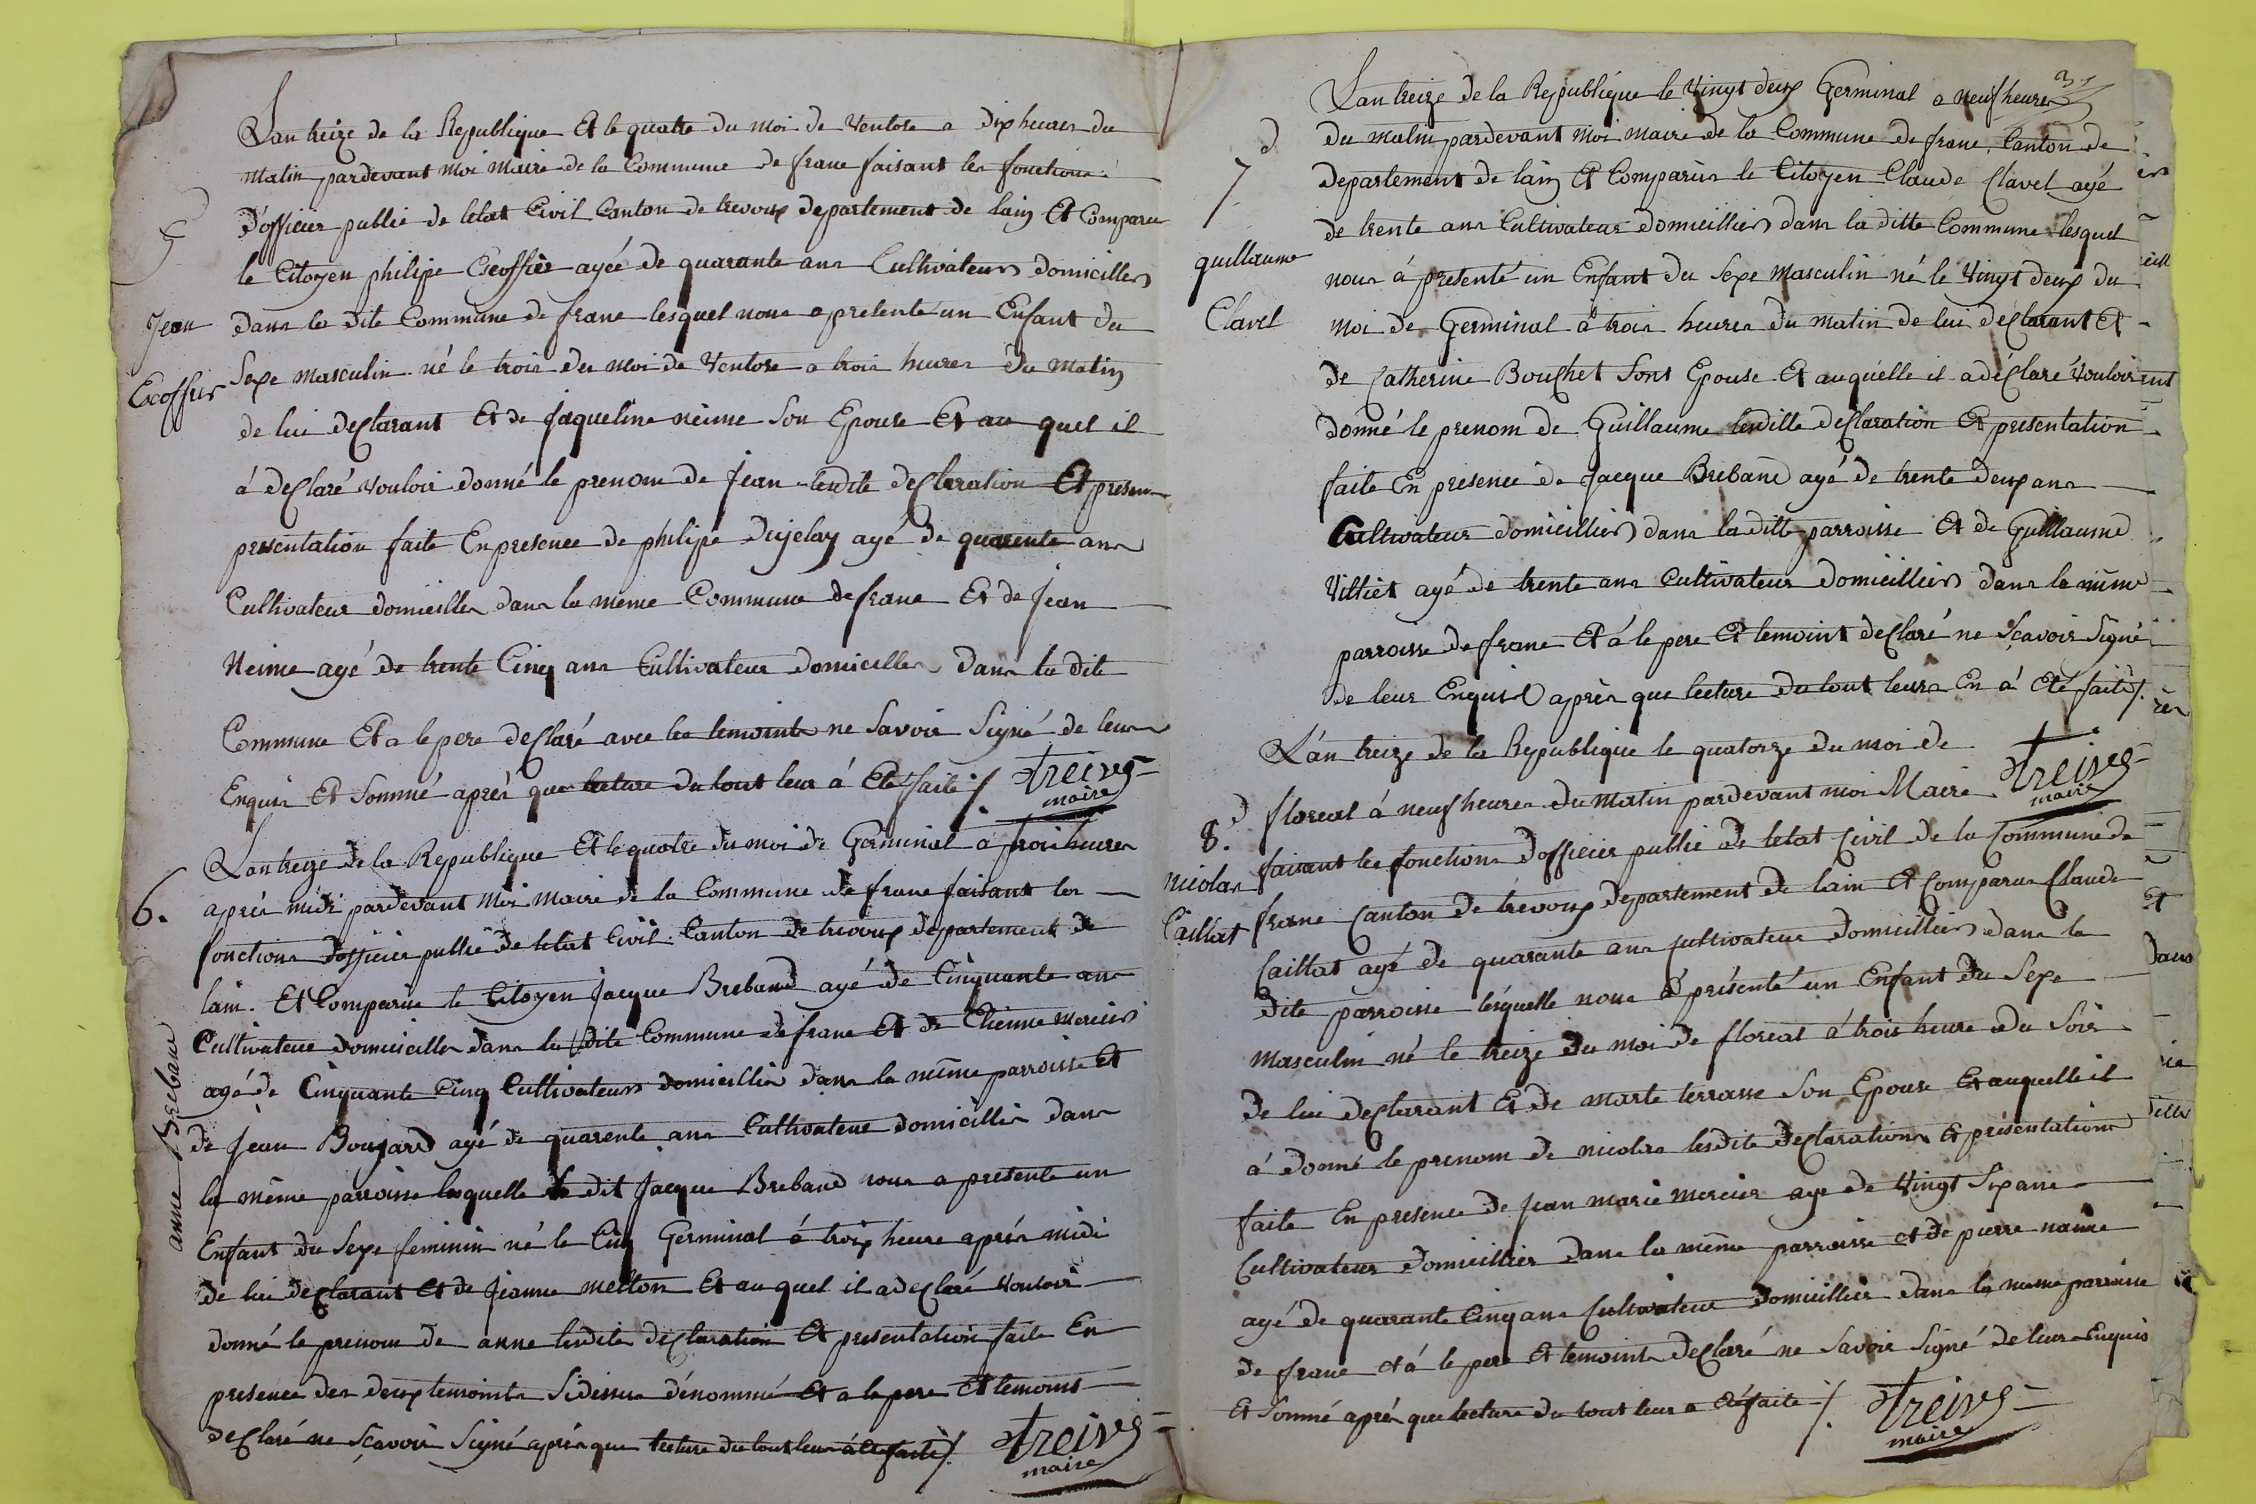 5
Jean
Escoffier
Lan treize de la Republique Et le quatre du moi de Ventose a dix heures du
matin pardevant moi maire de la Commune de frane faisant les fonctions
d'officier public de letat Civil Canton de trevoux departement de lain Et Comparu
le Citoyen philipe Escoffier agée de quarante ans Cultivateurs domicillers
dans la dite Commune de frane lesquel nous a presenté un Enfant du
Sexe masculin né le trois du moi de Ventose a trois heures du matin
de lui declarant Et de jaqueline neime Son Epouse Et au quel il
á declaré vouloir donné le prenom de jean lesdite declaration Et presen
presentation faite En presence de philipe Dujelay agé de quarente ans
Cultivateur domiciller dans la meme Commune de frane Et de jean
Neime agé de trente Cinq ans Cultivateur domiciller dans la dite
Commune Et a le pere declaré avec les temoints ne Savoir Signé de leurs
Enquis Et Sommé aprés que lecture du tout leur á Eté faite ./. Treive
maire
6.
anne Breband
Lan treize de la Republique Et le quatre du moi de Germinal á trois heures
aprés midi pardevant moi maire de la Commune de frane faisant les
fonctions d'officier public de letat Civil Canton de trevoux departement de
lain. Et Comparue le Citoyen jacque Breband agé de Cinquante ans
Cultivateur domiciller dans la dite Commune de frane Et de Etienne mercier
agé de Cinquante Cinq Cultivateurs domicillier dans la même parroisse Et
de jean Boujard agé de quarente ans Cultivateur domicillier dans
la même parroisse lesquelle le dit jacque Breband nous a presente un
Enfant du Sexe feminin né le Cinq Germinal á trois heure aprés midi
de lui declarant Et de jeanne melton Et au quel il a declaré vouloir
donné le prenom de anne lesdites declaration Et presentation faite En
presence des deux temoints Sidessus dénommé Et a le pere Et temoins
declaré ne Sçavoir Signé aprés que lecture du tout leur á Eté faite ./. Treive
maire
3
7
guillaume
Clavel
Lan treize de la Republique le Vingt deux Germinal a neuf heures
du matin pardevant moi maire de la Commune de frane, Canton de
departement de lain Et Comparus le Citoyen Claude Clavel agé
de trente ans Cultivateur domicilliers dans la ditte Commune lesquel
nous á presenté un Enfant du Sexe masculin né le Vingt deux du
moi de Germinal á trois heures du matin de lui declarant Et
de Catherine Bouchet Sont Epouse Et auquélle il a déclaré vouloir
donné le prenom de Guillaume lesditte declaration Et presentation
faite En presence de jacque Breband agé de trente deux ans
Cultivateur domicilliers dans la ditte parroisse Et de Guillaume
Villiet agé de trente ans Cultivateur domicilliers dans la même
parroisse de frane Et á le pere Et temoint declaré ne Sçavoir Signé
de leur Enquis aprés que lecture du tout leurs En á Eté faite ./.
Treive
maire
8.
nicolas
Caillat
L'an treize de la Republique le quatorze du moi de
floreal á neuf heures du matin pardevant moi Maire
faisant les fonctions d'officier public de letat Civil de la Commune de
frane Canton de trevoux departement de lain Et Comparus Claude
Caillat agé de quarante ans Cultivateur domicilliers dans la
dite parroisse lesquelle nous á présenté un Enfant du Sexe
masculin né le treize du moi de floreal á trois heure du Soir
de lui declarant Et de marte terrasse Son Epouse Et auquelle il
á donné le prenom de nicolas lesdite declarations Et présentations
faite En presence de jean marie mercier age de Vingt Six ans
Cultivateur domicillier dans la même parroisse et de pierre naime
agé de quarante Cinq ans Cultivateur domicillier dans la meme parroisse
de frane et á le pere Et temoints declaré ne Savoir Signé de leurs Enquis
Et Sommé aprés que lecture du tout leur a Eté faite ./. Treive
maire